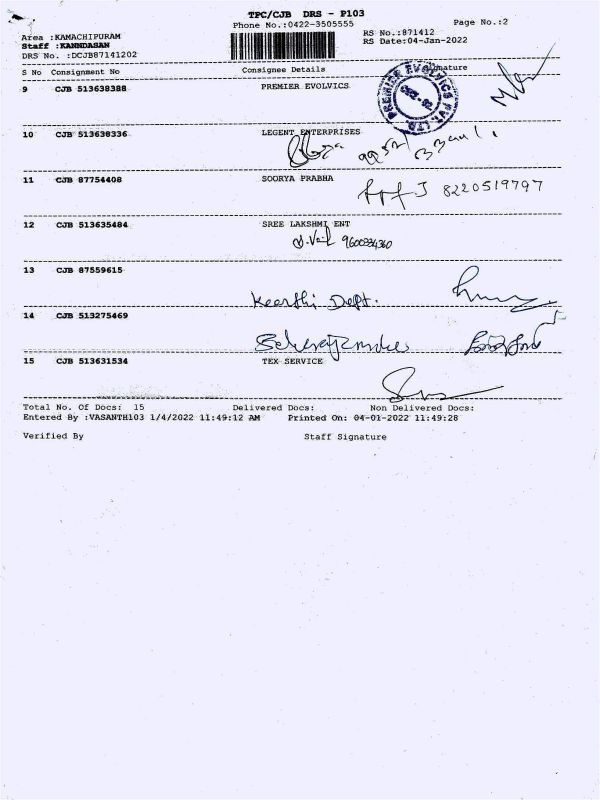 TPC/CJB DRS - P103
Phone No.:0422-3505555
Page No.:2
Area :KAMACHIPURAM
RS No.:871412
Staff :KANNDASAN
RS Date:04-Jan-2022
DRS No. :DCJB87141202
S No Consignment No Consignee Details Signature
9 CJB 513638388 PREMIER EVOLVICS
PREMIER EVOLVICS PVT. LTD.
10 CJB 513638336 LEGENT ENTERPRISES
11 CJB 87754408 SOORYA PRABHA
8220519797
12 CJB 513635484 SREE LAKSHMI ENT
13 CJB 87559615
Keerthi Dept.
14 CJB 513275469
15 CJB 513631534 TEX SERVICE
Total No. Of Docs: 15 Delivered Docs: Non Delivered Docs:
Entered By :VASANTH103 1/4/2022 11:49:12 AM Printed On: 04-01-2022 11:49:28
Verified By Staff Signature